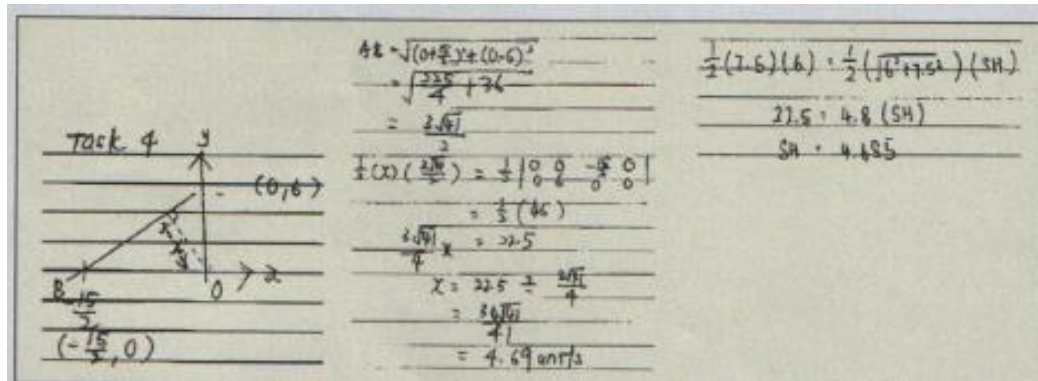 Task 4
y
(0,6)
x
x
B
O
-15/2
(-15/2, 0)
AB = √((0+15/2)²+(0-6)²)
= √(225/4 + 36)
= 3√41/2
½(x)(3√41/2) = ½ |0 0 -15/2 0|
|0 6 0 0|
= ½(45)
3√41/4 x = 22.5
x = 22.5 ÷ 3√41/4
= 30√41/41
= 4.69 units
½(7.5)(6) = ½(√(6²+7.5²))(SH)
22.5 = 4.8 (SH)
SH = 4.685